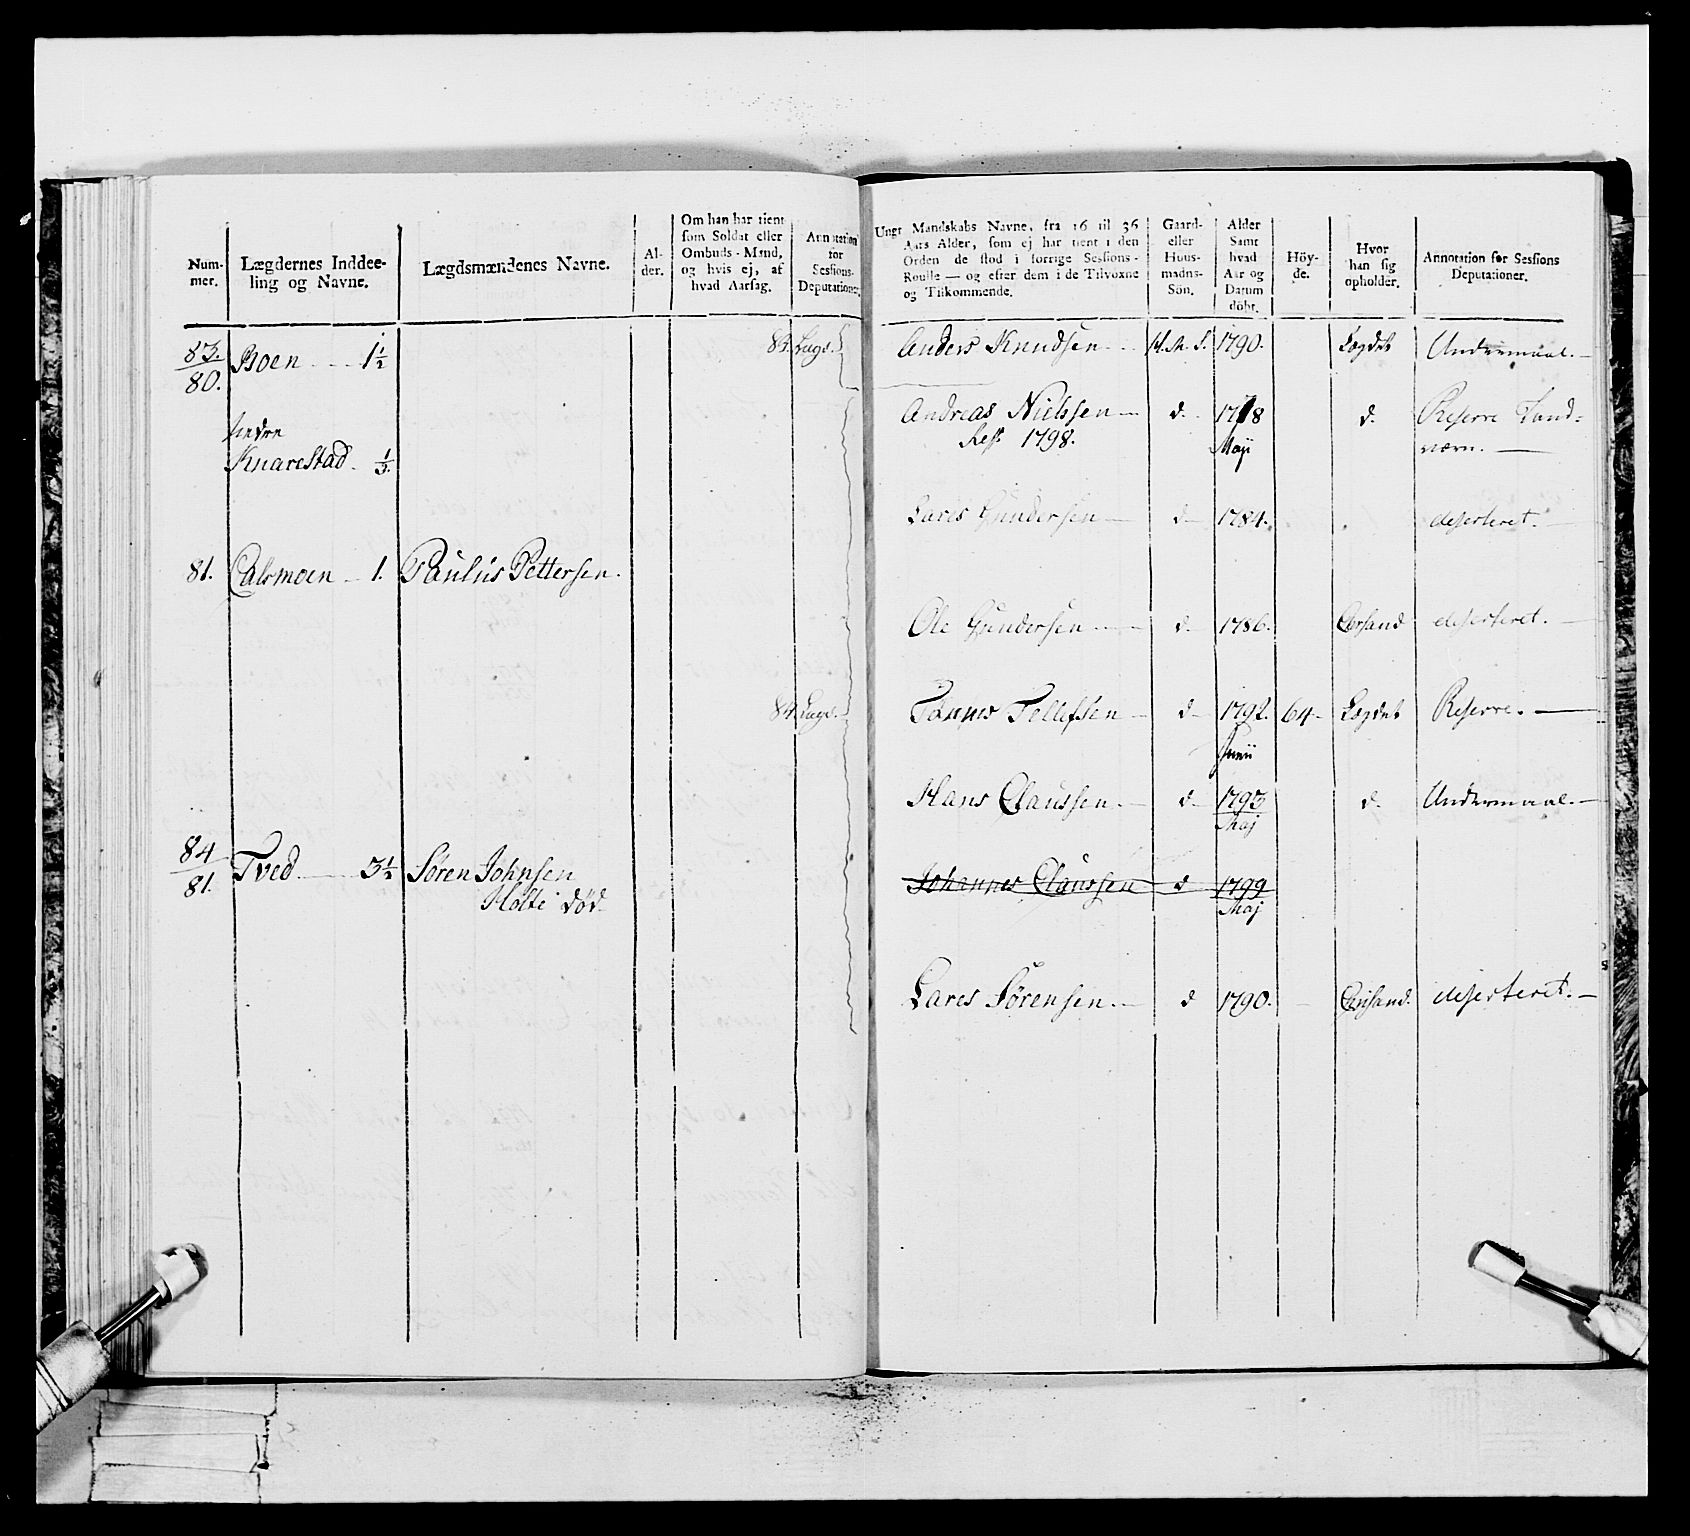 Num-
mer.
Lægdernes Inddee-
ling og Navne.
Lægdsmændenes Navne.
Al-
der.
Om han har tient
som Soldat eller
Ombuds-Mand,
og hvis ej, af
hvad Aarsag.
Annotation
for
Sessions-
Deputationer.
83.
80.
Boen 1 1/2
83. Lægd.
Knarestad 1/3
81. Calsmoen 1. Paulus Pettersen.
84. Lægd.
84
81.
Tved 3 1/2 Søren Johnsen
Holte død
Ungt Mandskabs Navne, fra 16 til 36
Aars Alder, som ej har tient i den
Orden de stod i forrige Sessions-
Roulle — og efter dem i de Tilvoxne
og Tilkommende.
Gaard-
eller
Huus-
mands-
Sön.
Alder
Samt
hvad
Aar og
Datum
döbt.
Höy-
de.
Hvor
han sig
opholder.
Annotation for Sessions
Deputationer.
Anders Knudsen H. M. S. 1790. Lægdet Undermaal.
Andreas Nielsen d. 1778 d. Reserve Land-
1798. Maji værn.
Lares Gundersen d 1784. deserteret.
Ole Gundersen d 1786. Chrsand deserteret.
Tønnes Tellefsen d 1792. 64 Lægdet Reserve.
Junii
Hans Claussen d 1793 d. Undermaal.
Maj
Johannes Claussen d 1799
Maj
Lares Sørensen d 1790. Chrisand. deserteret.